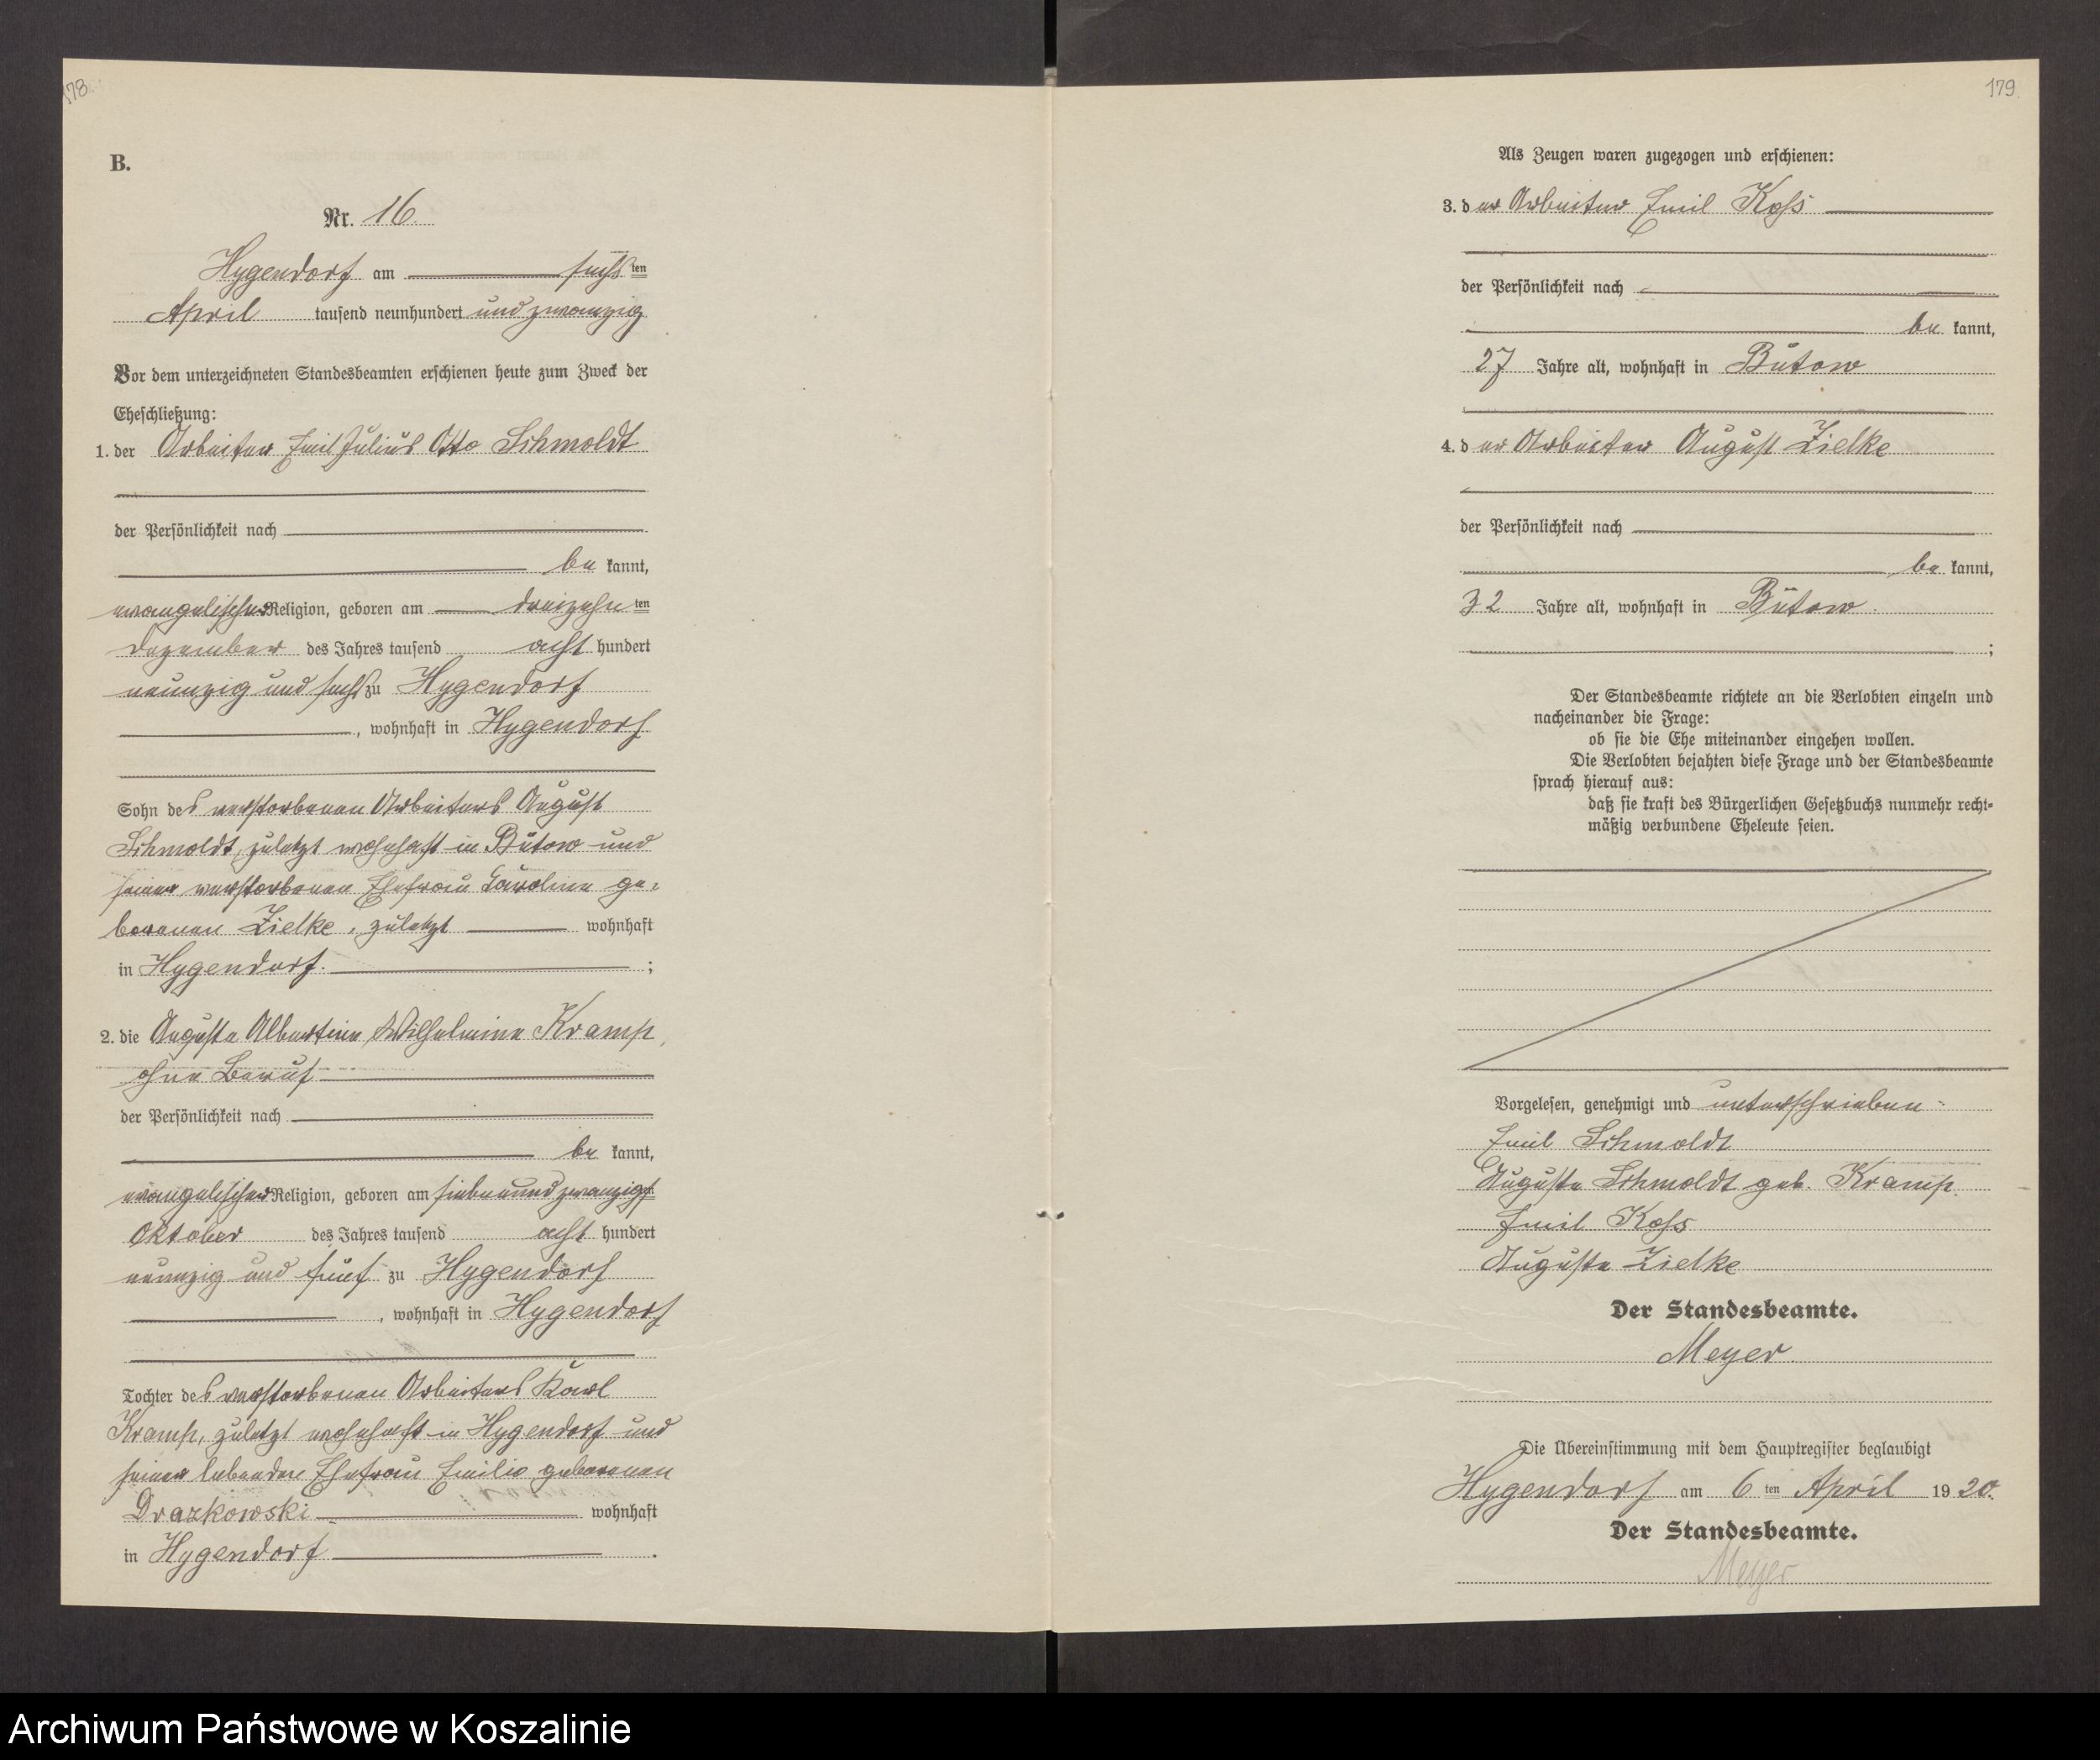 178.
B.
Nr. 16.
Hygendorf am sechsten
April tausend neunhundert und zwanzig
Vor dem unterzeichneten Standesbeamten erschienen heute zum Zweck der
Eheschließung:
1. der Arbeiter Emil Julius Otto Schmoldt
der Persönlichkeit nach
be kannt,
evangelischer Religion, geboren am dreizehn ten
Dezember des Jahres tausend acht hundert
neunzig und sechs zu Hygendorf
, wohnhaft in Hygendorf
Sohn des verstorbenen Arbeiters August
Schmoldt, zuletzt wohnhaft in Bütow und
seiner verstorbenen Ehefrau Karoline ge-
borenen Zielke, zuletzt wohnhaft
in Hygendorf. ;
2. die Auguste Albertine Wilhelmine Kramp,
ohne Beruf
der Persönlichkeit nach
be kannt,
evangelischer Religion, geboren am siebenundzwanzigst
Oktober des Jahres tausend acht hundert
neunzig und fünf zu Hygendorf
, wohnhaft in Hygendorf
Tochter des verstorbenen Arbeiters Karl
Kramp, zuletzt wohnhaft in Hygendorf und
seiner lebenden Ehefrau Emilie geborenen
Drazkowski wohnhaft
in Hygendorf .
179.
Als Zeugen waren zugezogen und erschienen:
3. der Arbeiter Emil Koss
der Persönlichkeit nach
be kannt,
27 Jahre alt, wohnhaft in Bütow
4. der Arbeiter August Zielke
der Persönlichkeit nach
be kannt,
32 Jahre alt, wohnhaft in Bütow
;
Der Standesbeamte richtete an die Verlobten einzeln und
nacheinander die Frage:
ob sie die Ehe miteinander eingehen wollen.
Die Verlobten bejahten diese Frage und der Standesbeamte
sprach hierauf aus:
daß sie kraft des Bürgerlichen Gesetzbuchs nunmehr recht-
mäßig verbundene Eheleute seien.
Vorgelesen, genehmigt und unterschrieben
Emil Schmoldt
Auguste Schmoldt geb. Kramp.
Emil Koss
Auguste Zielke
Der Standesbeamte.
Meyer.
Die Übereinstimmung mit dem Hauptregister beglaubigt
Hygendorf am 6 ten April 1920.
Der Standesbeamte.
Meyer
Archiwum Państwowe w Koszalinie